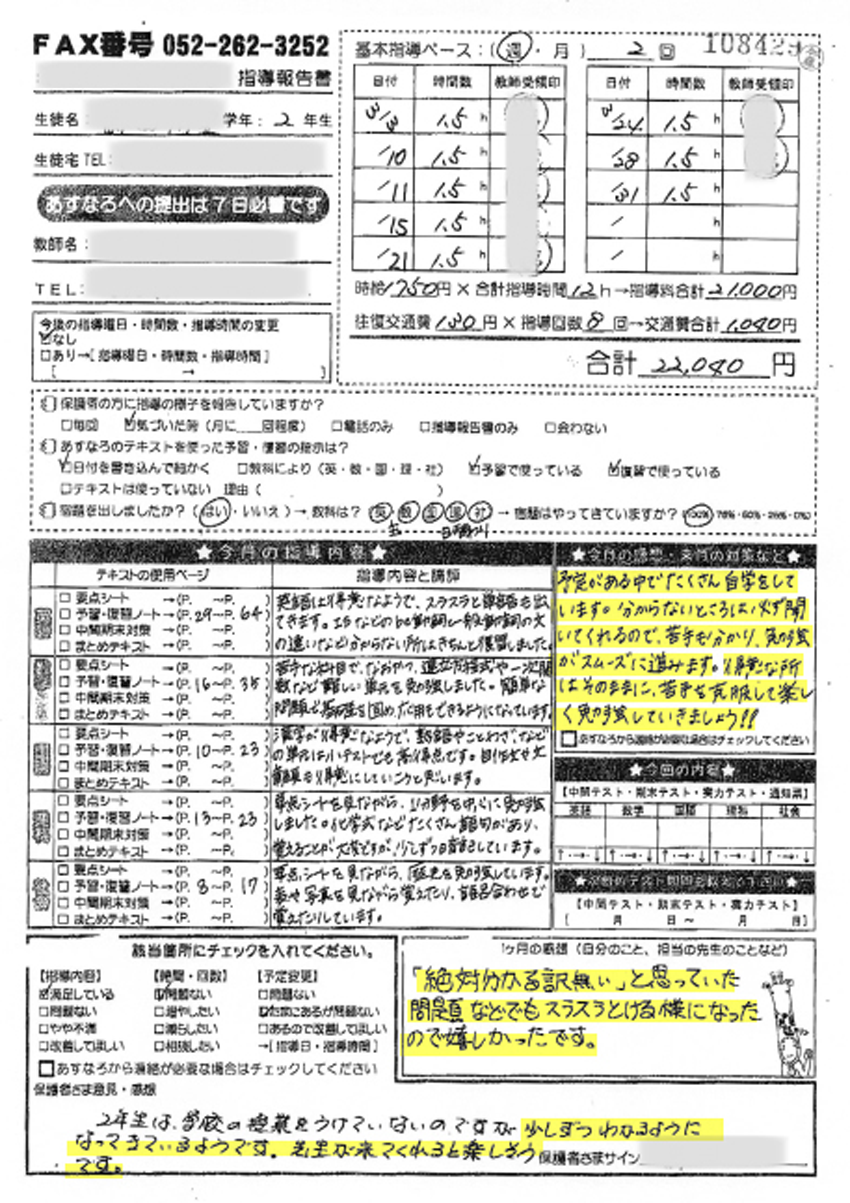 FAX番号 052-262-3252
指導報告書
生徒名 学年: 2 年生
生徒宅 TEL:
あすなろへの提出は7日必着です
教師名:
TEL:
今後の指導曜日・時間数・指導時間の変更
☑なし
□あり→[指導曜日・時間数・指導時間]
[ → ]
基本指導ペース:(週・月) 2 回 108425
日付 時間数 教師受領印
3/3 1.5 h
/10 1.5 h
/11 1.5 h
/15 1.5 h
/21 1.5 h
日付 時間数 教師受領印
3/24 1.5 h
/28 1.5 h
/31 1.5 h
/ h
/ h
時給1750円×合計指導時間12h→指導料合計21,000円
往復交通費130円×指導回数8回→交通費合計1,040円
合計 22,040 円
保護者の方に指導の様子を報告していますか?
□毎回 ☑気づいた時(月に 回程度) □電話のみ □指導報告書のみ □会わない
あすなろのテキストを使った予習・復習の指示は?
☑日付を書き込んで細かく □教科により(英・数・国・理・社) ☑予習で使っている ☑復習で使っている
□テキストは使っていない 理由( )
宿題を出しましたか?(はい・いいえ)→教科は? 英 数 国 理 社 →宿題はやってきていますか?(100%・75%・50%・25%・0%)
★今月の指導内容★
テキストの使用ページ 指導内容と講評
□要点シート →(P. ~P. )
□予習・復習ノート→(P.29~P.64)
□中間期末対策 →(P. ~P. )
□まとめテキスト →(P. ~P. )
英語は得意なようで、スラスラと
の違いなど分からない所はきちんと復習しました。
□要点シート →(P. ~P. )
□予習・復習ノート→(P.16~P.35)
□中間期末対策 →(P. ~P. )
□まとめテキスト →(P. ~P. )
苦手な科目で、なおかつ、連立方程式や一次関
数など難しい単元を勉強しました。簡単な
問題で基礎を固め、応用もできるようになっています。
□要点シート →(P. ~P. )
□予習・復習ノート→(P.10~P.23)
□中間期末対策 →(P. ~P. )
□まとめテキスト →(P. ~P. )
漢字が得意なようで、熟語やことわざ、などな
の単元は小テストでも高得点です。
得意にしていこうと思います。
□要点シート →(P. ~P. )
□予習・復習ノート→(P.13~P.23)
□中間期末対策 →(P. ~P. )
□まとめテキスト →(P. ~P. )
要点シートを見ながら、1分野を中心に勉強
しました。化学式などたくさん語句があり、
覚えることが大変ですが、少しずつ暗記しています。
□要点シート →(P. ~P. )
□予習・復習ノート→(P.8~P.17)
□中間期末対策 →(P. ~P. )
□まとめテキスト →(P. ~P. )
要点シートを見ながら、歴史を勉強しています。
表や写真を見ながら覚えたり、語呂合わせで
覚えたりしています。
★今月の感想・来月の対策など★
予定がある中でたくさん自学をして
います。分からないところは必ず聞
いてくれるので、苦手も分かり、勉強
がスムーズに進みます。得意な所
はそのままに、苦手を克服して楽し
く勉強していきましょう!!
□あすなろから連絡が必要な場合はチェックしてください
★今回の内容★
【中間テスト・期末テスト・実力テスト・通知票】
英語 数学 国語 理科 社会
↑・→・↓ ↑・→・↓ ↑・→・↓ ↑・→・↓ ↑・→・↓
【中間テスト・期末テスト・実力テスト】
[ 月 日 ~ 月 日]
該当箇所にチェックを入れてください。
【指導内容】 【時間・回数】 【予定変更】
☑満足している ☑問題ない □問題ない
□問題ない □増やしたい ☑たまにあるが問題ない
□やや不満 □減らしたい □あるので改善してほしい
□改善してほしい □相談したい →[指導日・指導時間]
□あすなろから連絡が必要な場合はチェックしてください
1ヶ月の感想(自分のこと、担当の先生のことなど)
「絶対分かる訳無い」と思っていた
問題などでもスラスラとける様になった
ので嬉しかったです。
保護者さま意見・感想
2年生は、学校の授業をうけていないのですが少しずつわかるように
なってきているようです。先生が来てくれると楽しそう 保護者さまサイン
です。